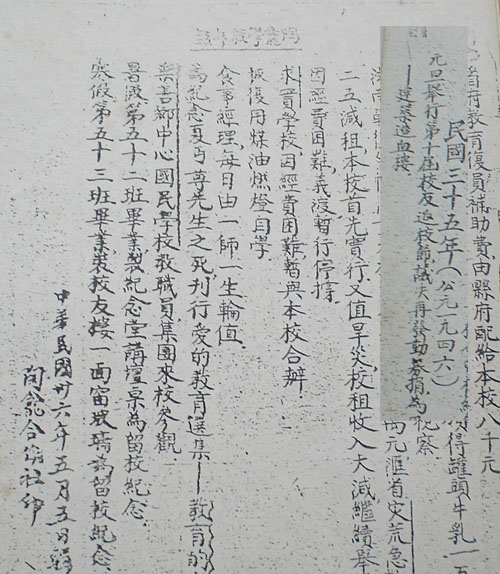 省府教育復員補助費由縣府配給本校八千元
民國三十五年(公元一九四六)
得罐頭牛乳一
元旦舉行第十屆校友返校節 再發動募捐為
視察
四元滙省災荒急
二五減租本校首先實行又值旱災校租收入大減繼續舉
因經費困難,義渡暫行停擺.
求實學校因經費困難,暫與本校合辦.
恢復用煤油燃燈自學.
食事經理,每日由一師一生輪值.
為紀念夏丏尊先生之死,刊行愛的教育選集——教育的
鄉中心國民學校教職員集團來校參觀
暑假第五十二班畢業製紀念堂講壇桌為留校紀念.
寒假第五十三班畢業裝校友樓一面窗玻璃為留校紀念.
中華民國卅六年五月五日
陶龕合作社印